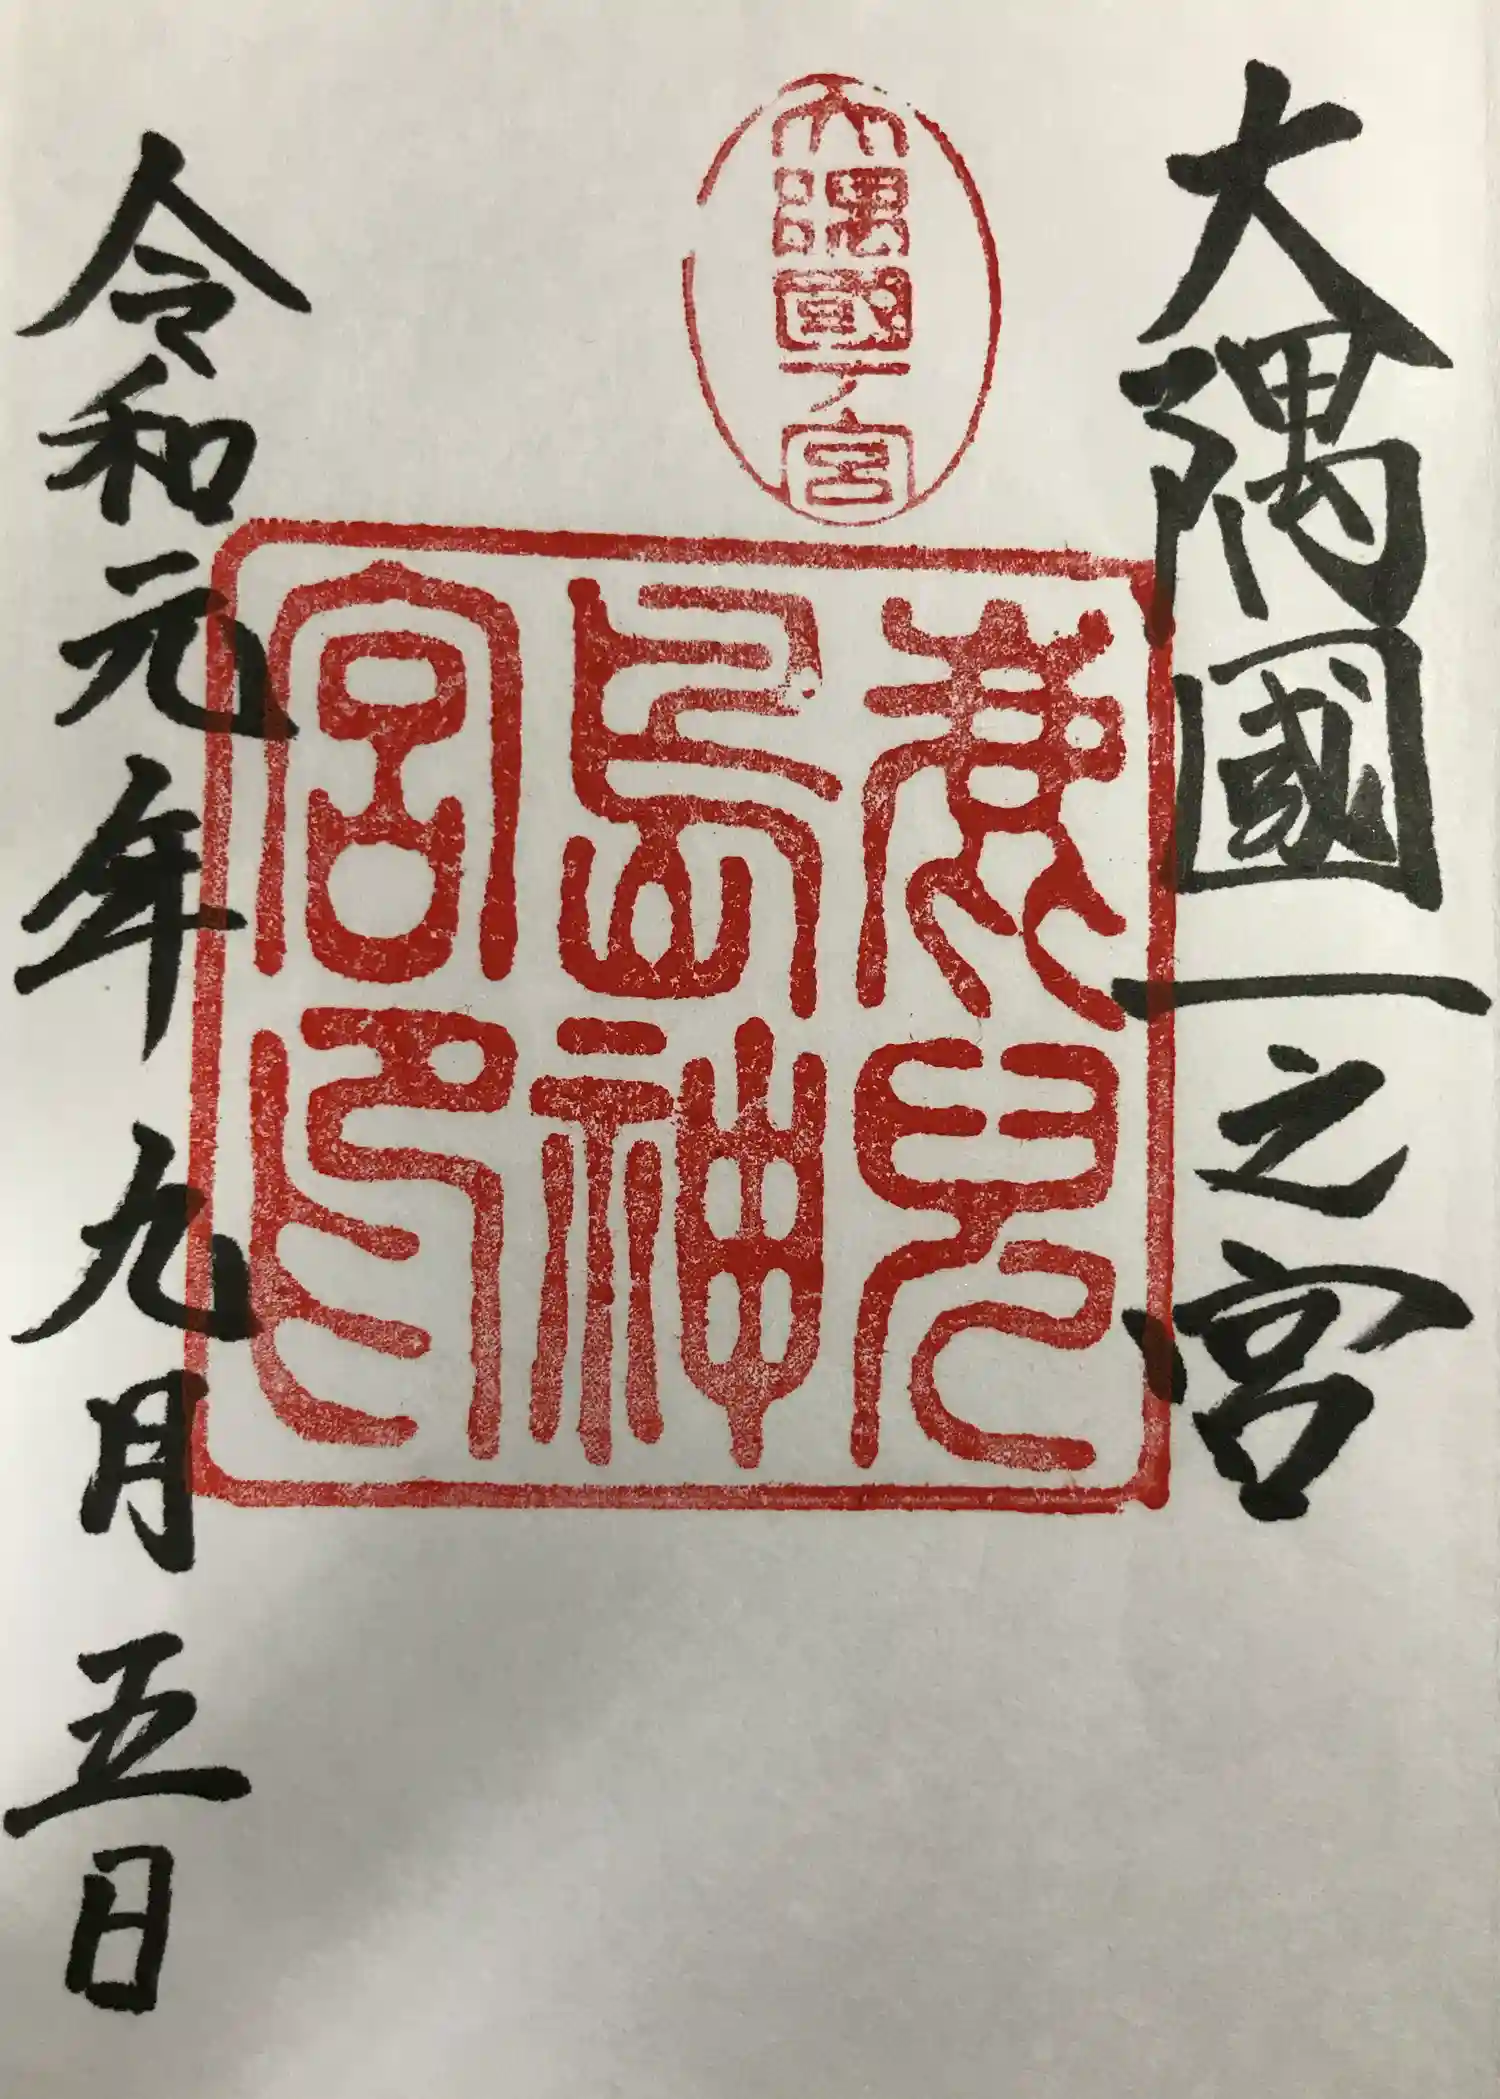 大隅國一之宮
大隅國一宮
鹿兒島神宮印
令和元年九月五日